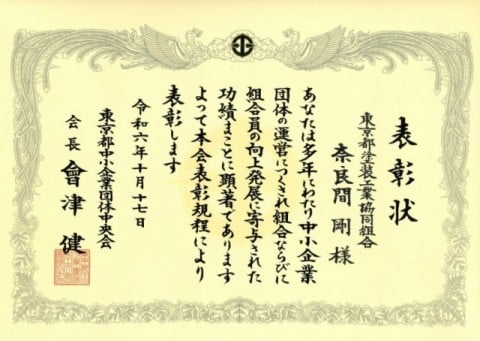 表彰状
東京都塗装工業協同組合
奈良間 剛 様
あなたは多年にわたり中小企業
団体の運営につくされ組合ならびに
組合員の向上発展に寄与された
功績まことに顕著であります
よって本会表彰規程により
表彰します
令和六年十月十七日
東京都中小企業団体中央会
会長 會津 健